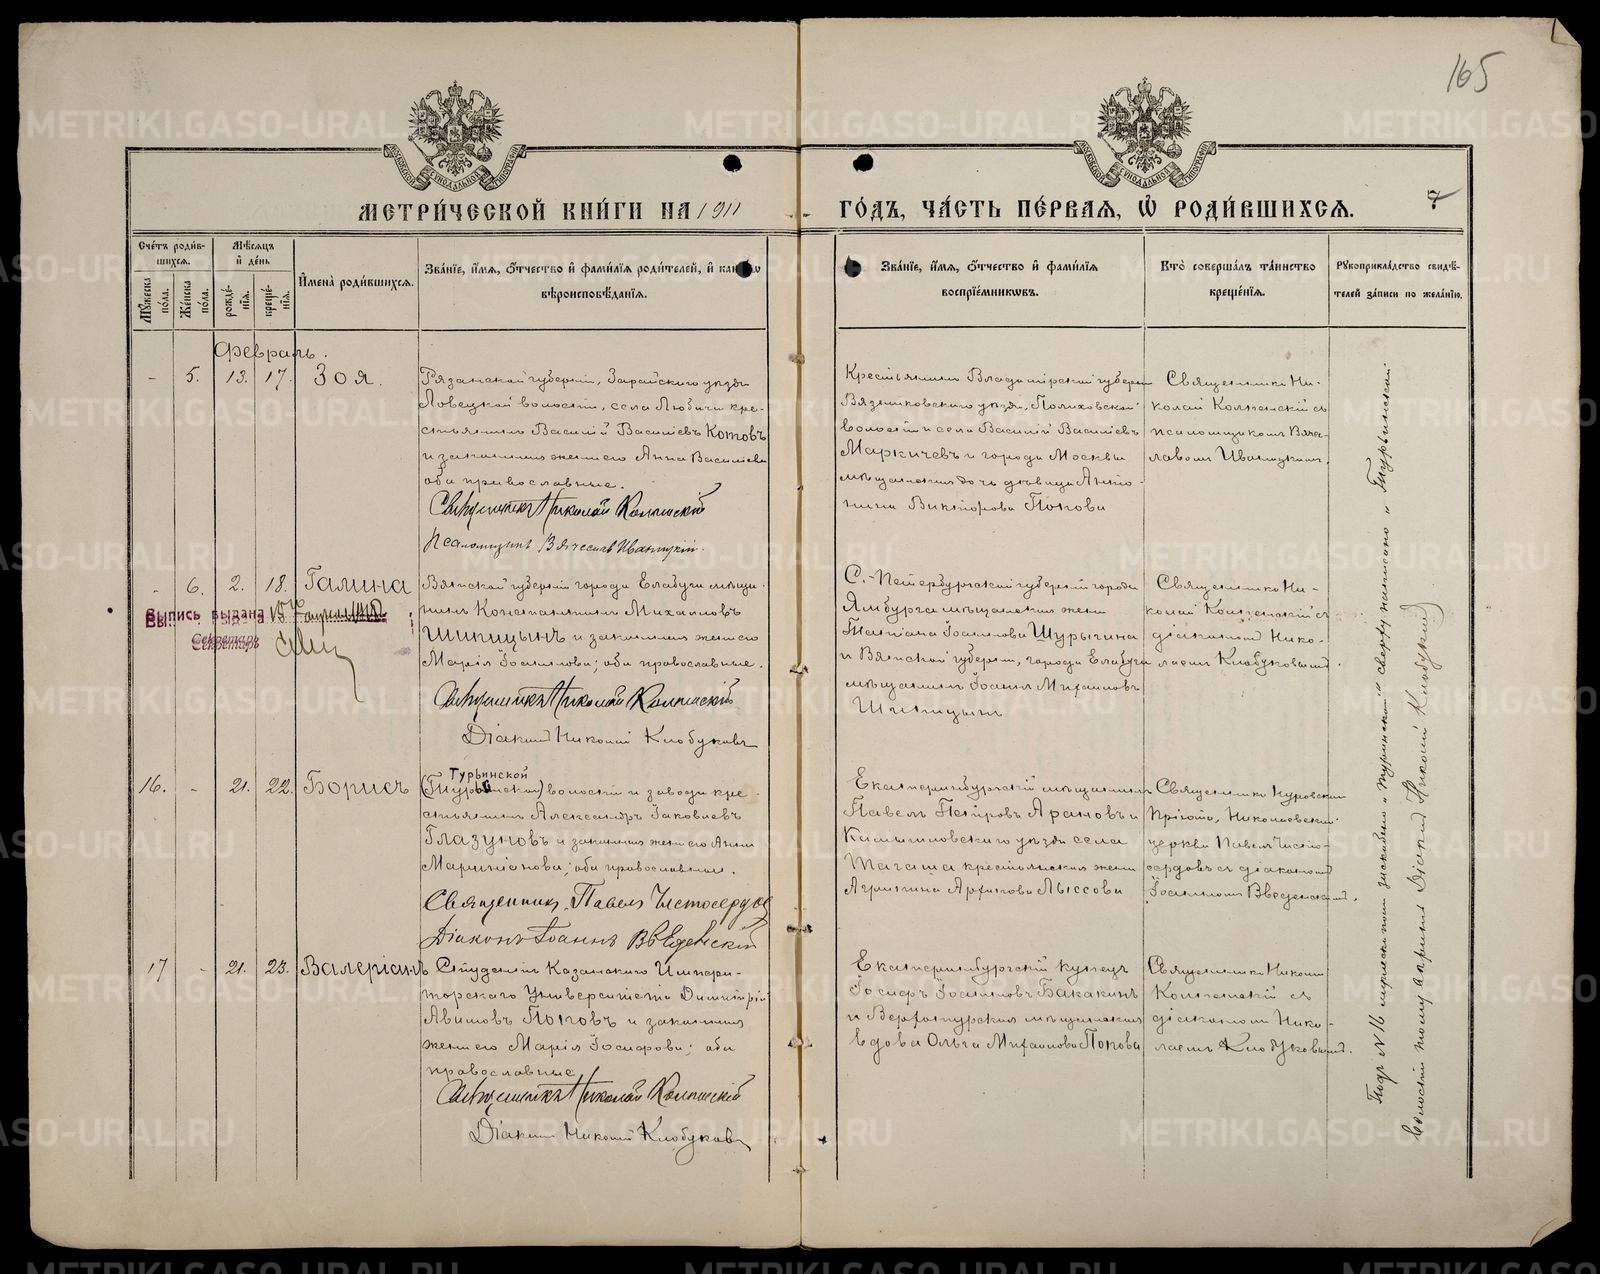 165
МЕТРИ́ЧЕСКОЙ КНИ́ГИ НА 1911
ГО́ДЪ, ЧА́СТЬ ПЕ́РВАЯ, Ѡ РОДИ́ВШИХСЯ.
7
Сче́тъ роди́в-
шихся.
Мѣ́сяцъ
и́ де́нь
Мꙋ́жеска
по́ла.
Же́нска
по́ла.
рожде́-
нїя.
креще́-
нїя.
И҆мена̀ роди́вшихся.
Зва́нїе, и҆́мя, ѻ҆́тчество и҆ фами́лїя роди́телей, и҆ како́гѡ
вѣроисповѣ́данїя.
Зва́нїе, и҆́мя, ѻ҆́тчество и҆ фами́лїя
воспрїе́мникѡвъ.
Кто̀ соверша́лъ та́инство
креще́нїя.
Рꙋкоприкла́дство свидѣ́-
телей за́писи по жела́нїю.
Февраль.
- 5. 13. 17. Зоя.
Рязанской губерніи, Зарайскаго уѣзда
Ловецкой волости, села Любичи кре-
стьянинъ Василій Василіевъ Котовъ
и законная жена его Анна Василіева
оба православные.
Священникъ Николай
Псаломщикъ Вячеславъ Иваницкій.
Крестьянинъ Владимірской губерніи
Вязниковскаго уѣзда,
волости и села Василій Василіевъ
Маркичевъ и города Москвы
мѣщанская дочь дѣвица Анто-
нина Викторова Попова
Священникъ Ни-
колай съ
псаломщикомъ Вяче-
славомъ Иваницкимъ.
- 6. 2. 18. Галина
Вятской губерніи города Елабуги мѣща-
нинъ Константинъ Михаиловъ
Шишицынъ и законная жена его
Марія Іоаннова; оба православные.
Священникъ Николай
Діаконъ Николай Клобуковъ
Выпись выдана 15 апрѣля
Секретарь
С.-Петербургской губерніи города
Ямбурга мѣщанская жена
Татіана Іоаннова Шурыгина
и Вятской губерніи, города Елабуги
мѣщанинъ Іоаннъ Михаиловъ
Шишицынъ
Священникъ Ни-
колай съ
діакономъ Нико-
лаемъ Клобуковымъ.
16. - 21. 22. Борисъ
Турьинской
волости и завода кре-
стьянинъ Александръ Іаковлевъ
Глазуновъ и законная жена его Анна
; оба православные.
Священникъ Павелъ Чистосердовъ
Діаконъ Іоаннъ Введенскій
Екатеринбургскій мѣщанинъ
Павелъ Петровъ Арановъ и
Камышловскаго уѣзда села
крестьянская жена
Архипова Лыссова
Священникъ
пріюта, Николаевской
церкви Павелъ Чисто-
сердовъ съ діакономъ
Іоанномъ Введенскимъ.
17 - 21. 23. Валеріанъ
Студентъ Казанскаго Импера-
торскаго Университета Димитрій
Поповъ и законная
жена его Марія Іосифова; оба
православные
Священникъ Николай
Діаконъ Николай Клобуковъ
Екатеринбургскій купецъ
Іосифъ Іоанновъ Бакакинъ
и Верхотурская мѣщанская
вдова Ольга Михаилова Попова
Священникъ Николай
съ
діакономъ Нико-
лаемъ Клобуковымъ.
Подъ № 16 сверху написано „Турьинской
волости Діаконъ Николай Клобуковъ
METRIKI.GASO-URAL.RU